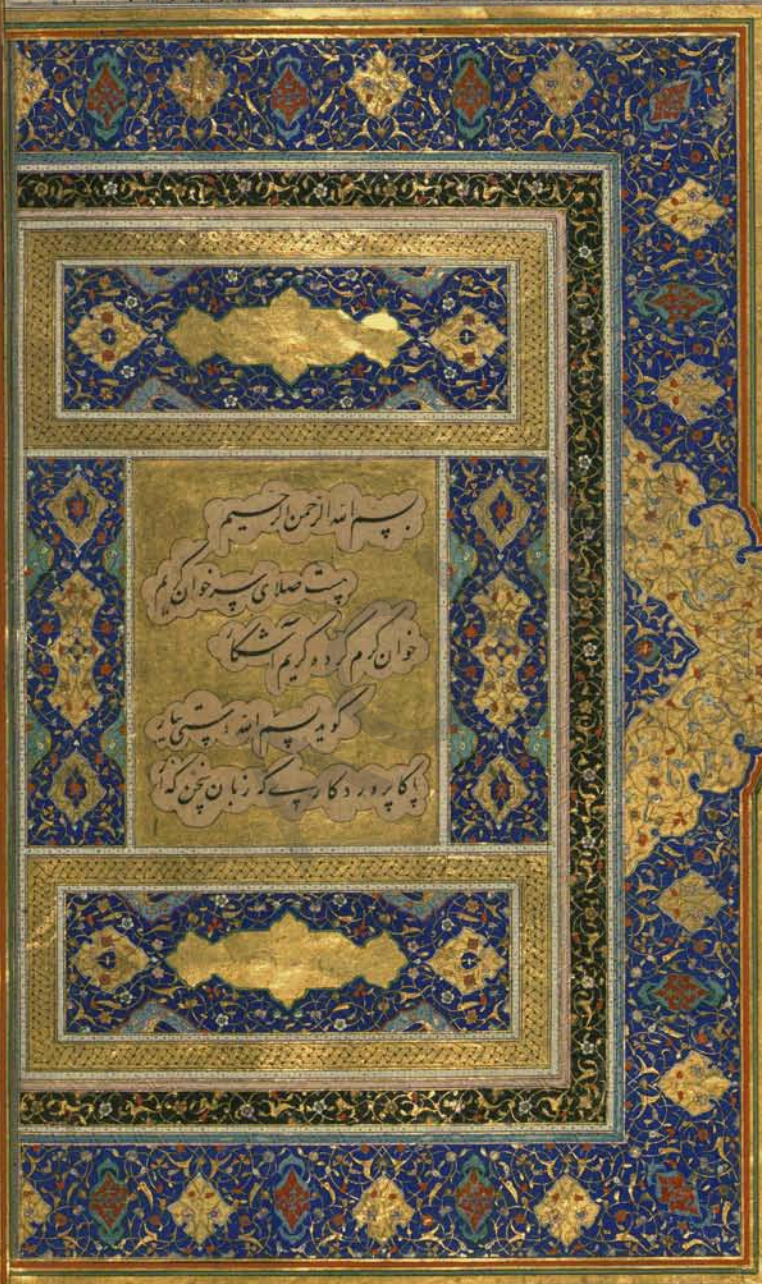 بسم الله الرحمن الرحیم
هست صلای سر خوان کریم
خوان کرم کرده کریم آشکار
گوید بسم الله دستی بیار
پاکا پروردکاری که زبان سخن